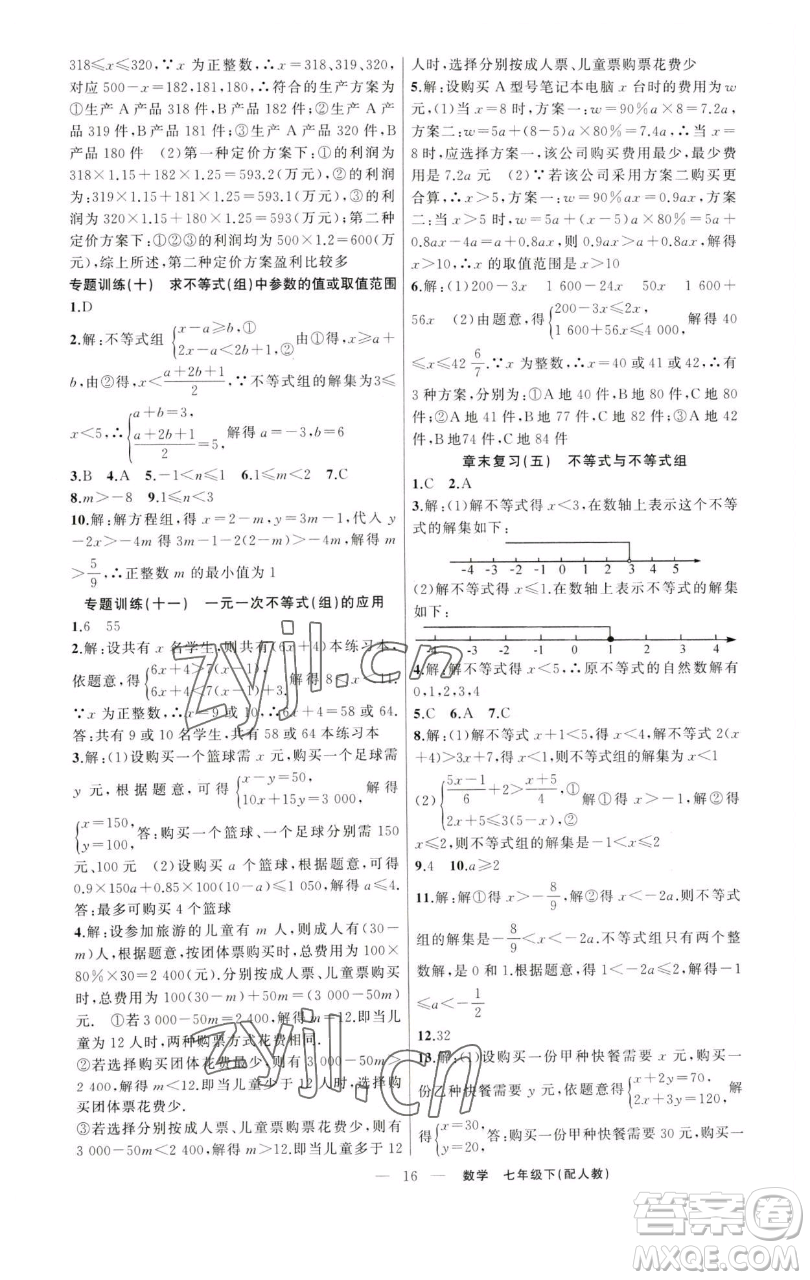 318≤x≤320,∵x 为正整数,∴x=318、319、320,
对应500-x=182,181,180,∴符合的生产方案为
①生产 A 产品 318 件,B 产品 182 件;②生产 A 产
品 319 件,B 产品 181 件;③生产 A 产品 320 件,B
产品 180 件 (2)第一种定价方案下:①的利润为
318×1.15+182×1.25=593.2(万元);②的利润
为:319×1.15+181×1.25=593.1(万元);③的利
润为 320×1.15+180×1.25=593(万元);第二种
定价方案下:①②③的利润均为 500×1.2=600(万
元),综上所述,第二种定价方案盈利比较多
专题训练(十) 求不等式(组)中参数的值或取值范围
1.D
2.解:不等式组{x-a≥b,① 2x-a<2b+1,② 由①得,x≥a+
b,由②得,x<(a+2b+1)/2,∵不等式组的解集为3≤
x<5,∴{a+b=3, (a+2b+1)/2=5, 解得 a=-3,b=6
3.B 4.A 5.-1<n≤1 6.1≤m<4 7.C
8.m>-8 9.1≤n<3
10.解:解方程组,得 x=2-m,y=3m-1,代入 y
-2x>-4m 得 3m-1-2(2-m)>-4m,解得 m
>5/9,∴正整数 m 的最小值为 1
专题训练(十一) 一元一次不等式(组)的应用
1.6 55
2.解:设共有 x 名学生,则共有(6x+4)本练习本,
依题意,得{6x+4>7(x-1), 6x+4<7(x-1)+3, 解得 8<x<11.
∵x 为正整数,∴x=9 或 10,∴6x+4=58 或 64.
答:共有 9 或 10 名学生,共有 58 或 64 本练习本
3.解:(1)设购买一个篮球需 x 元,购买一个足球需
y 元,根据题意,可得{x-y=50, 10x+15y=3 000, 解得
{x=150, y=100, 答:购买一个篮球、一个足球分别需 150
元、100 元 (2)设购买 a 个篮球,根据题意,可得
0.9×150a+0.85×100(10-a)≤1 050,解得 a≤4.
答:最多可购买 4 个篮球
4.解:设参加旅游的儿童有 m 人,则成人有(30-
m)人,根据题意,按团体票购买时,总费用为 100×
80%×30=2 400(元).分别按成人票、儿童票购买
时,总费用为 100(30-m)+50m=(3 000-50m)
元. ①若3 000-50m=2 400.解得 m=12.即当儿
童为 12 人时,两种购票方式花费相同.
②若选择购买团体花费最少,则有 3 000-50m>
2 400.解得 m<12.即当儿童少于 12 人时,选择购
买团体票花费少.
③若选择分别按成人票、儿童票购票花费少,则有
3 000-50m<2 400.解得 m>12.即当儿童多于 12
人时,选择分别按成人票、儿童票购票花费少
5.解:设购买 A 型号笔记本电脑 x 台时的费用为 w
元,(1)当 x=8 时,方案一:w=90%a×8=7.2a,
方案二:w=5a+(8-5)a×80%=7.4a,∴当 x=
8 时,应选择方案一,该公司购买费用最少,最少费
用是 7.2a 元 (2)∵若该公司采用方案二购买更
合算,∴x>5,方案一:w=90%ax=0.9ax,方案
二:当 x>5 时,w=5a+(x-5)a×80%=5a+
0.8ax-4a=a+0.8ax,则 0.9ax>a+0.8ax,解得
x>10,∴x 的取值范围是 x>10
6.解:(1)200-3x 1 600-24x 50x 1 600+
56x (2)由题意,得{200-3x≥2x, 1 600+56x≤4 000, 解得 40
≤x≤42 6/7.∵x 为整数,∴x=40 或 41 或 42,∴有
3 种方案,分别为:①A 地 40 件,B 地 80 件,C 地 80
件;②A 地 41 件,B 地 77 件,C 地 82 件;③A 地 42
件,B 地 74 件,C 地 84 件
章末复习(五) 不等式与不等式组
1.C 2.A
3.解:(1)解不等式得 x<3,在数轴上表示这个不等
式的解集如下:
-4 -3 -2 -1 0 1 2 3 4 5
(2)解不等式得 x≤1.在数轴上表示不等式的解集
如下:
-4 -3 -2 -1 0 1 2 3 4
4.解:解不等式得 x<5,∴原不等式的自然数解有
0,1,2,3,4
5.C 6.A 7.C
8.解:(1)解不等式 x+1<5,得 x<4,解不等式 2(x
+4)>3x+7,得 x<1,则不等式组的解集为 x<1
(2){(5x-1)/6+2>(x+5)/4,① 2x+5≤3(5-x),② 解①得 x>-1,解②得
x≤2,则不等式组的解集是-1<x≤2
9.4 10.a≥2
11.解:解①得 x>-8/9,解②得 x<-2a,不等式
组的解集是-8/9<x<-2a.不等式组只有两个整
数解,是 0 和 1,根据题意,得 1<-2a≤2,解得-1
≤a<-1/2
12.32
13.解:(1)设购买一份甲种快餐需要 x 元,购买一
份乙种快餐需要 y 元,依题意,得{x+2y=70, 2x+3y=120, 解
得{x=30, y=20, 答:购买一份甲种快餐需要 30 元,购买
— 16 — 数学 七年级下(配人教)
zyjl.cn
zyjl.cn
答案圈
MXQE.COM